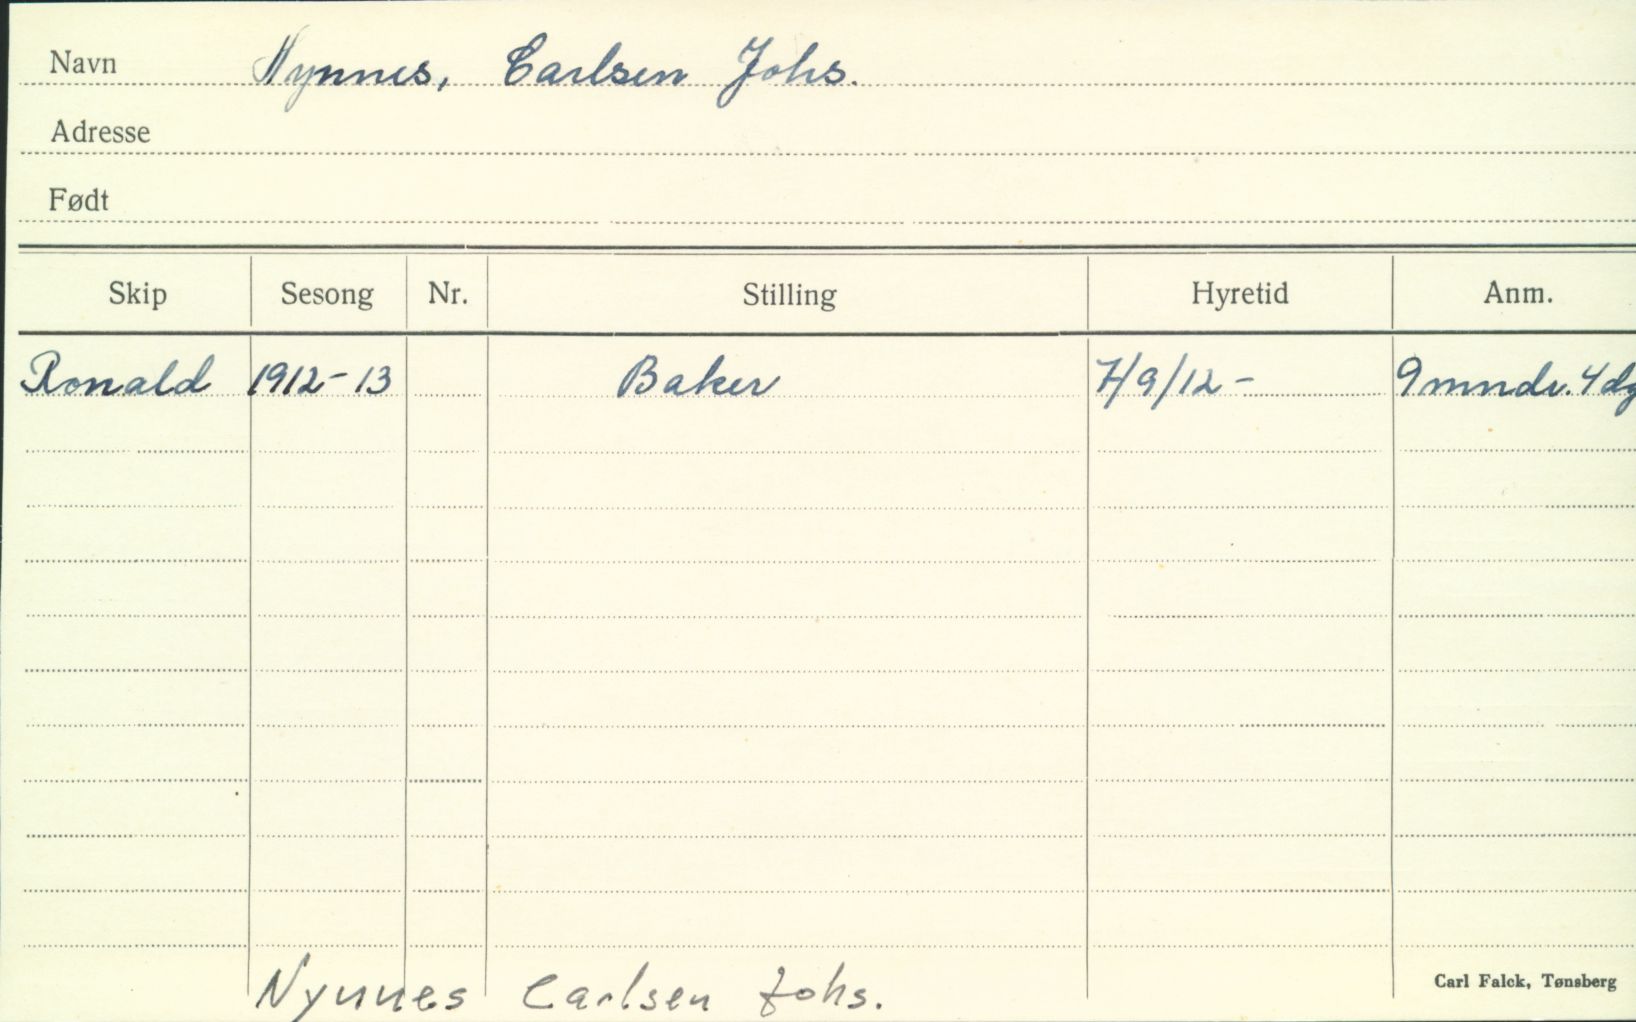 Navn Nynnes, Carlsen Johs.
Adresse
Født
Skip Sesong Nr. Stilling Hyretid Anm.
Ronald 1912-13 Baker 7/9/12- 9 mndr. 4 dg
Carl Falck, Tønsberg
Nynnes Carlsen Johs.